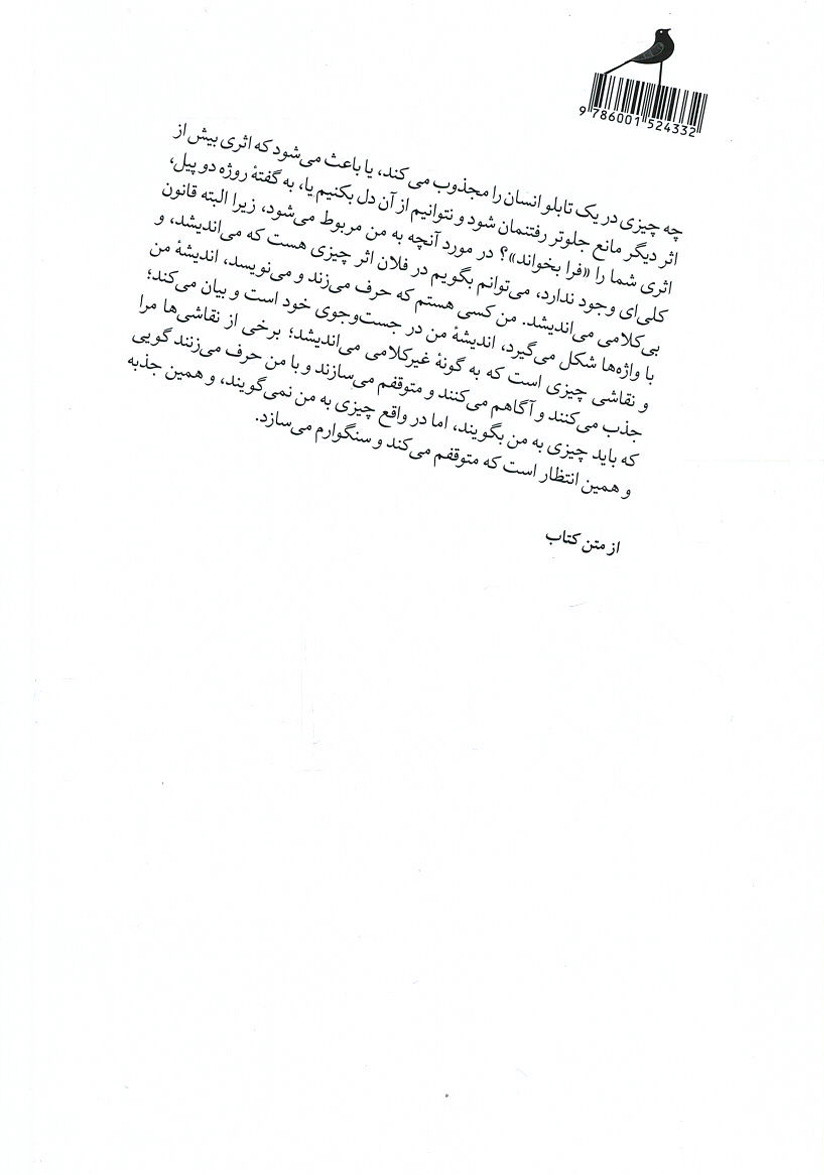 9 786001 524332
چه چیزی در یک تابلو انسان را مجذوب می‌کند، یا باعث می‌شود که اثری بیش از
اثر دیگر مانع جلوتر رفتنمان شود و نتوانیم از آن دل بکنیم یا، به گفتهٔ روژه دو پیل،
اثری شما را «فرا بخواند»؟ در مورد آنچه به من مربوط می‌شود، زیرا البته قانون
کلی‌ای وجود ندارد، می‌توانم بگویم در فلان اثر چیزی هست که می‌اندیشد، و
بی‌کلامی می‌اندیشد. من کسی هستم که حرف می‌زند و می‌نویسد، اندیشهٔ من
با واژه‌ها شکل می‌گیرد، اندیشهٔ من در جست‌وجوی خود است و بیان می‌کند؛
و نقاشی چیزی است که به گونهٔ غیرکلامی می‌اندیشد؛ برخی از نقاشی‌ها مرا
جذب می‌کنند و آگاهم می‌کنند و متوقفم می‌سازند و با من حرف می‌زنند گویی
که باید چیزی به من بگویند، اما در واقع چیزی به من نمی‌گویند، و همین جذبه
و همین انتظار است که متوقفم می‌کند و سنگوارم می‌سازد.
از متن کتاب